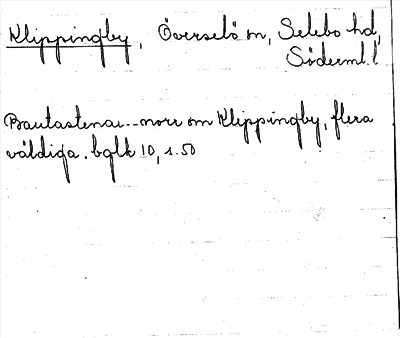 Klippingby, Överselö sn, Selebo hd,
Söderml. l.
Bautastenar.. norr om Klippingby, flera
väldiga. bglk 10, s. 50